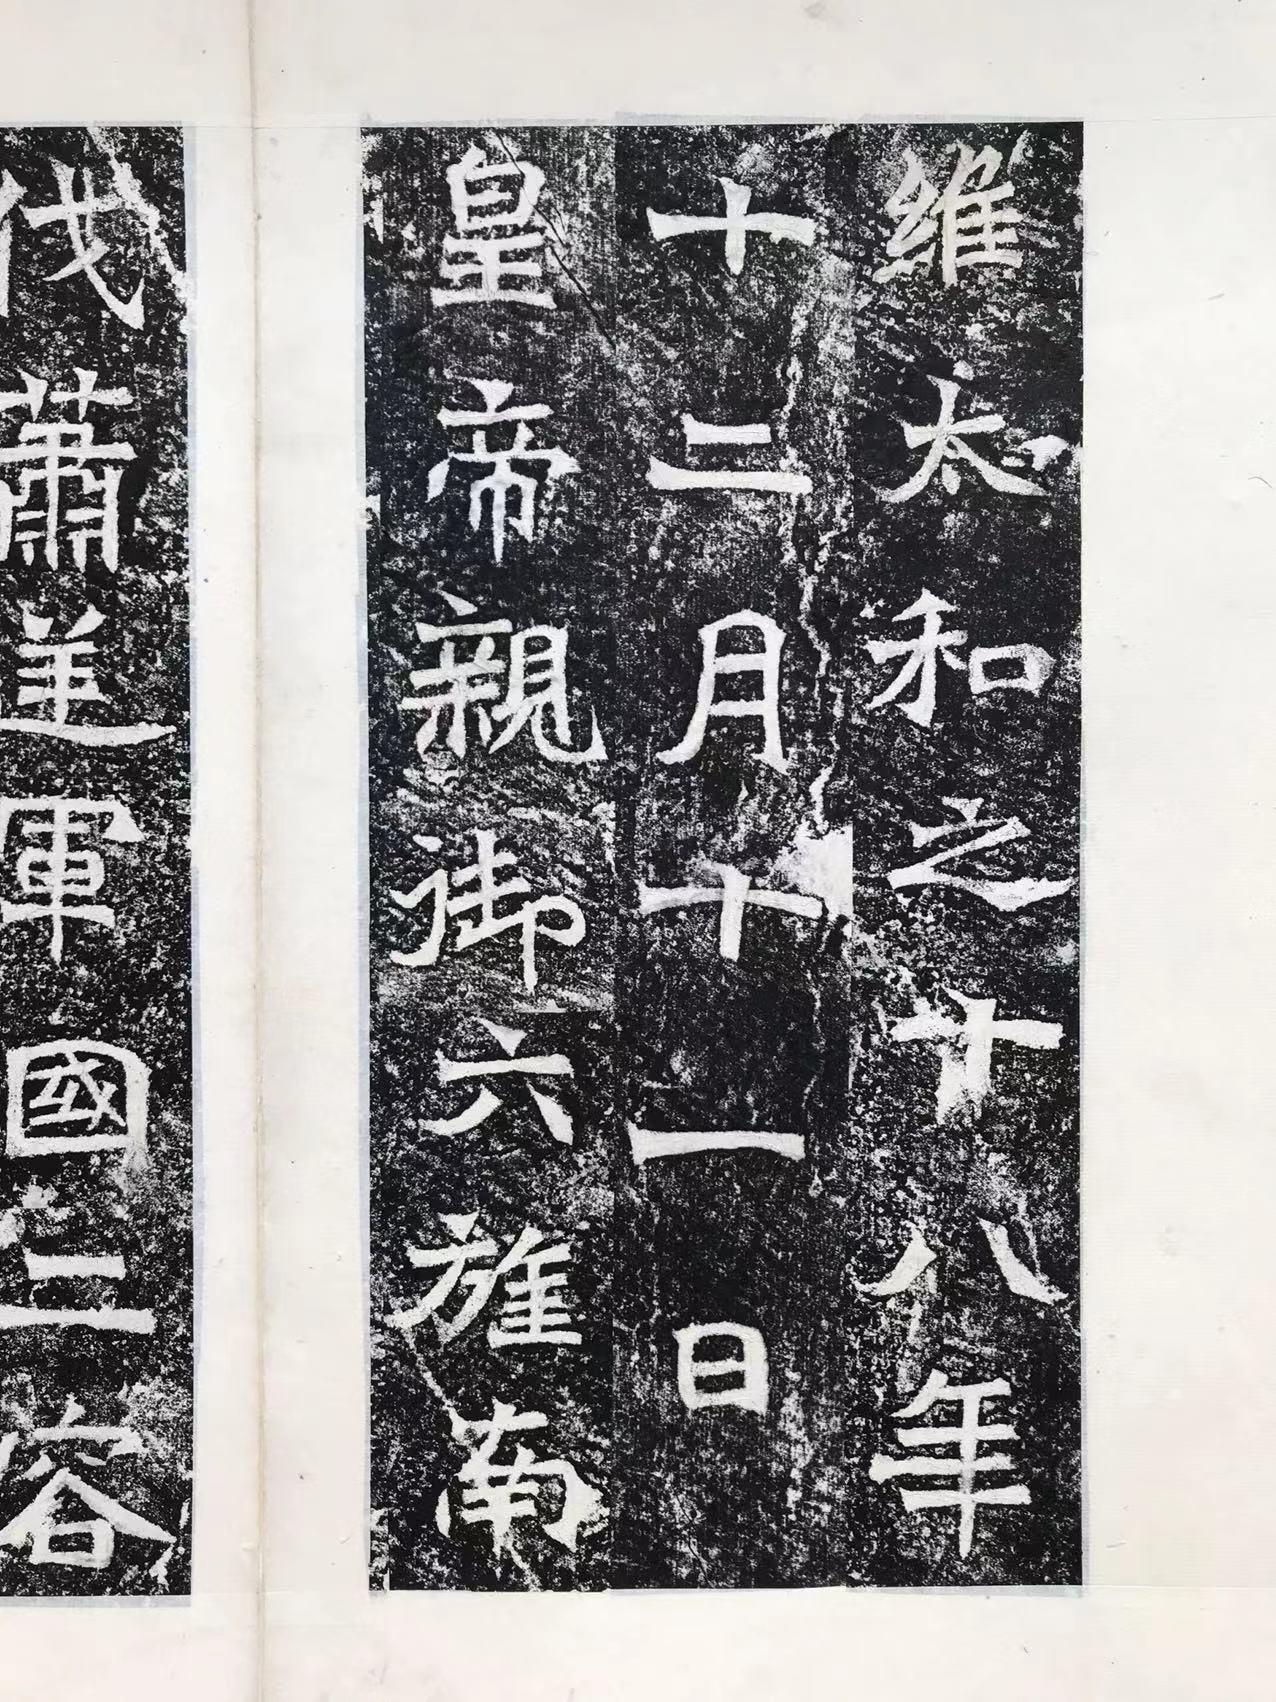 維太和之十八年
十二月十一日
皇帝親御六旌南
伐蕭逆軍國二容